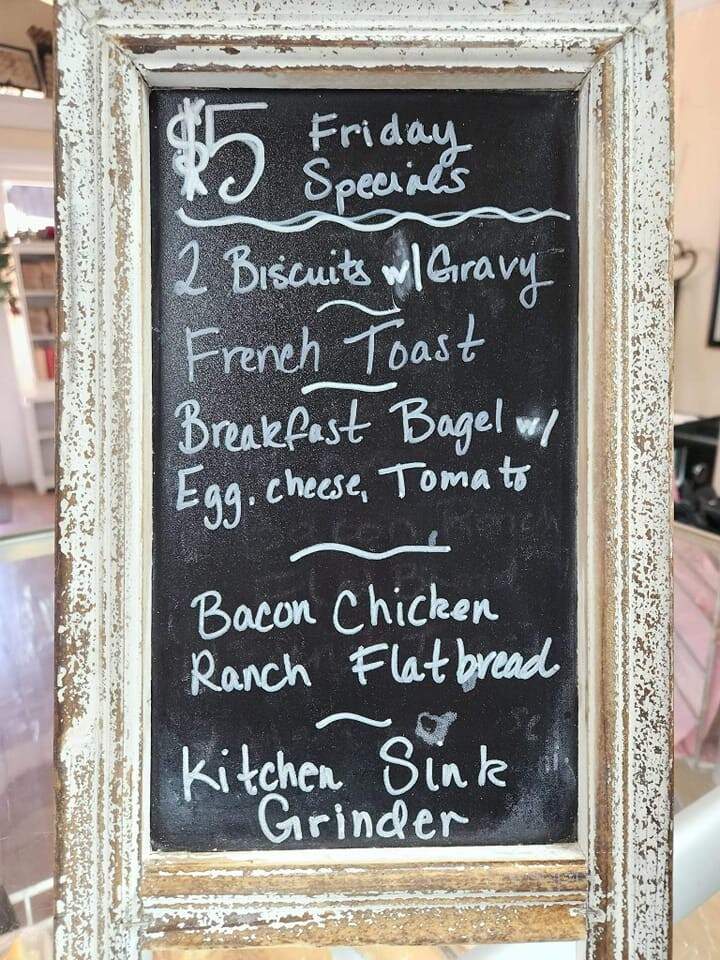 $5 Friday
Specials
2 Biscuits w/ Gravy
French Toast
Breakfast Bagel w/
Egg. cheese, Tomato
Bacon Chicken
Ranch Flatbread
Kitchen Sink
Grinder